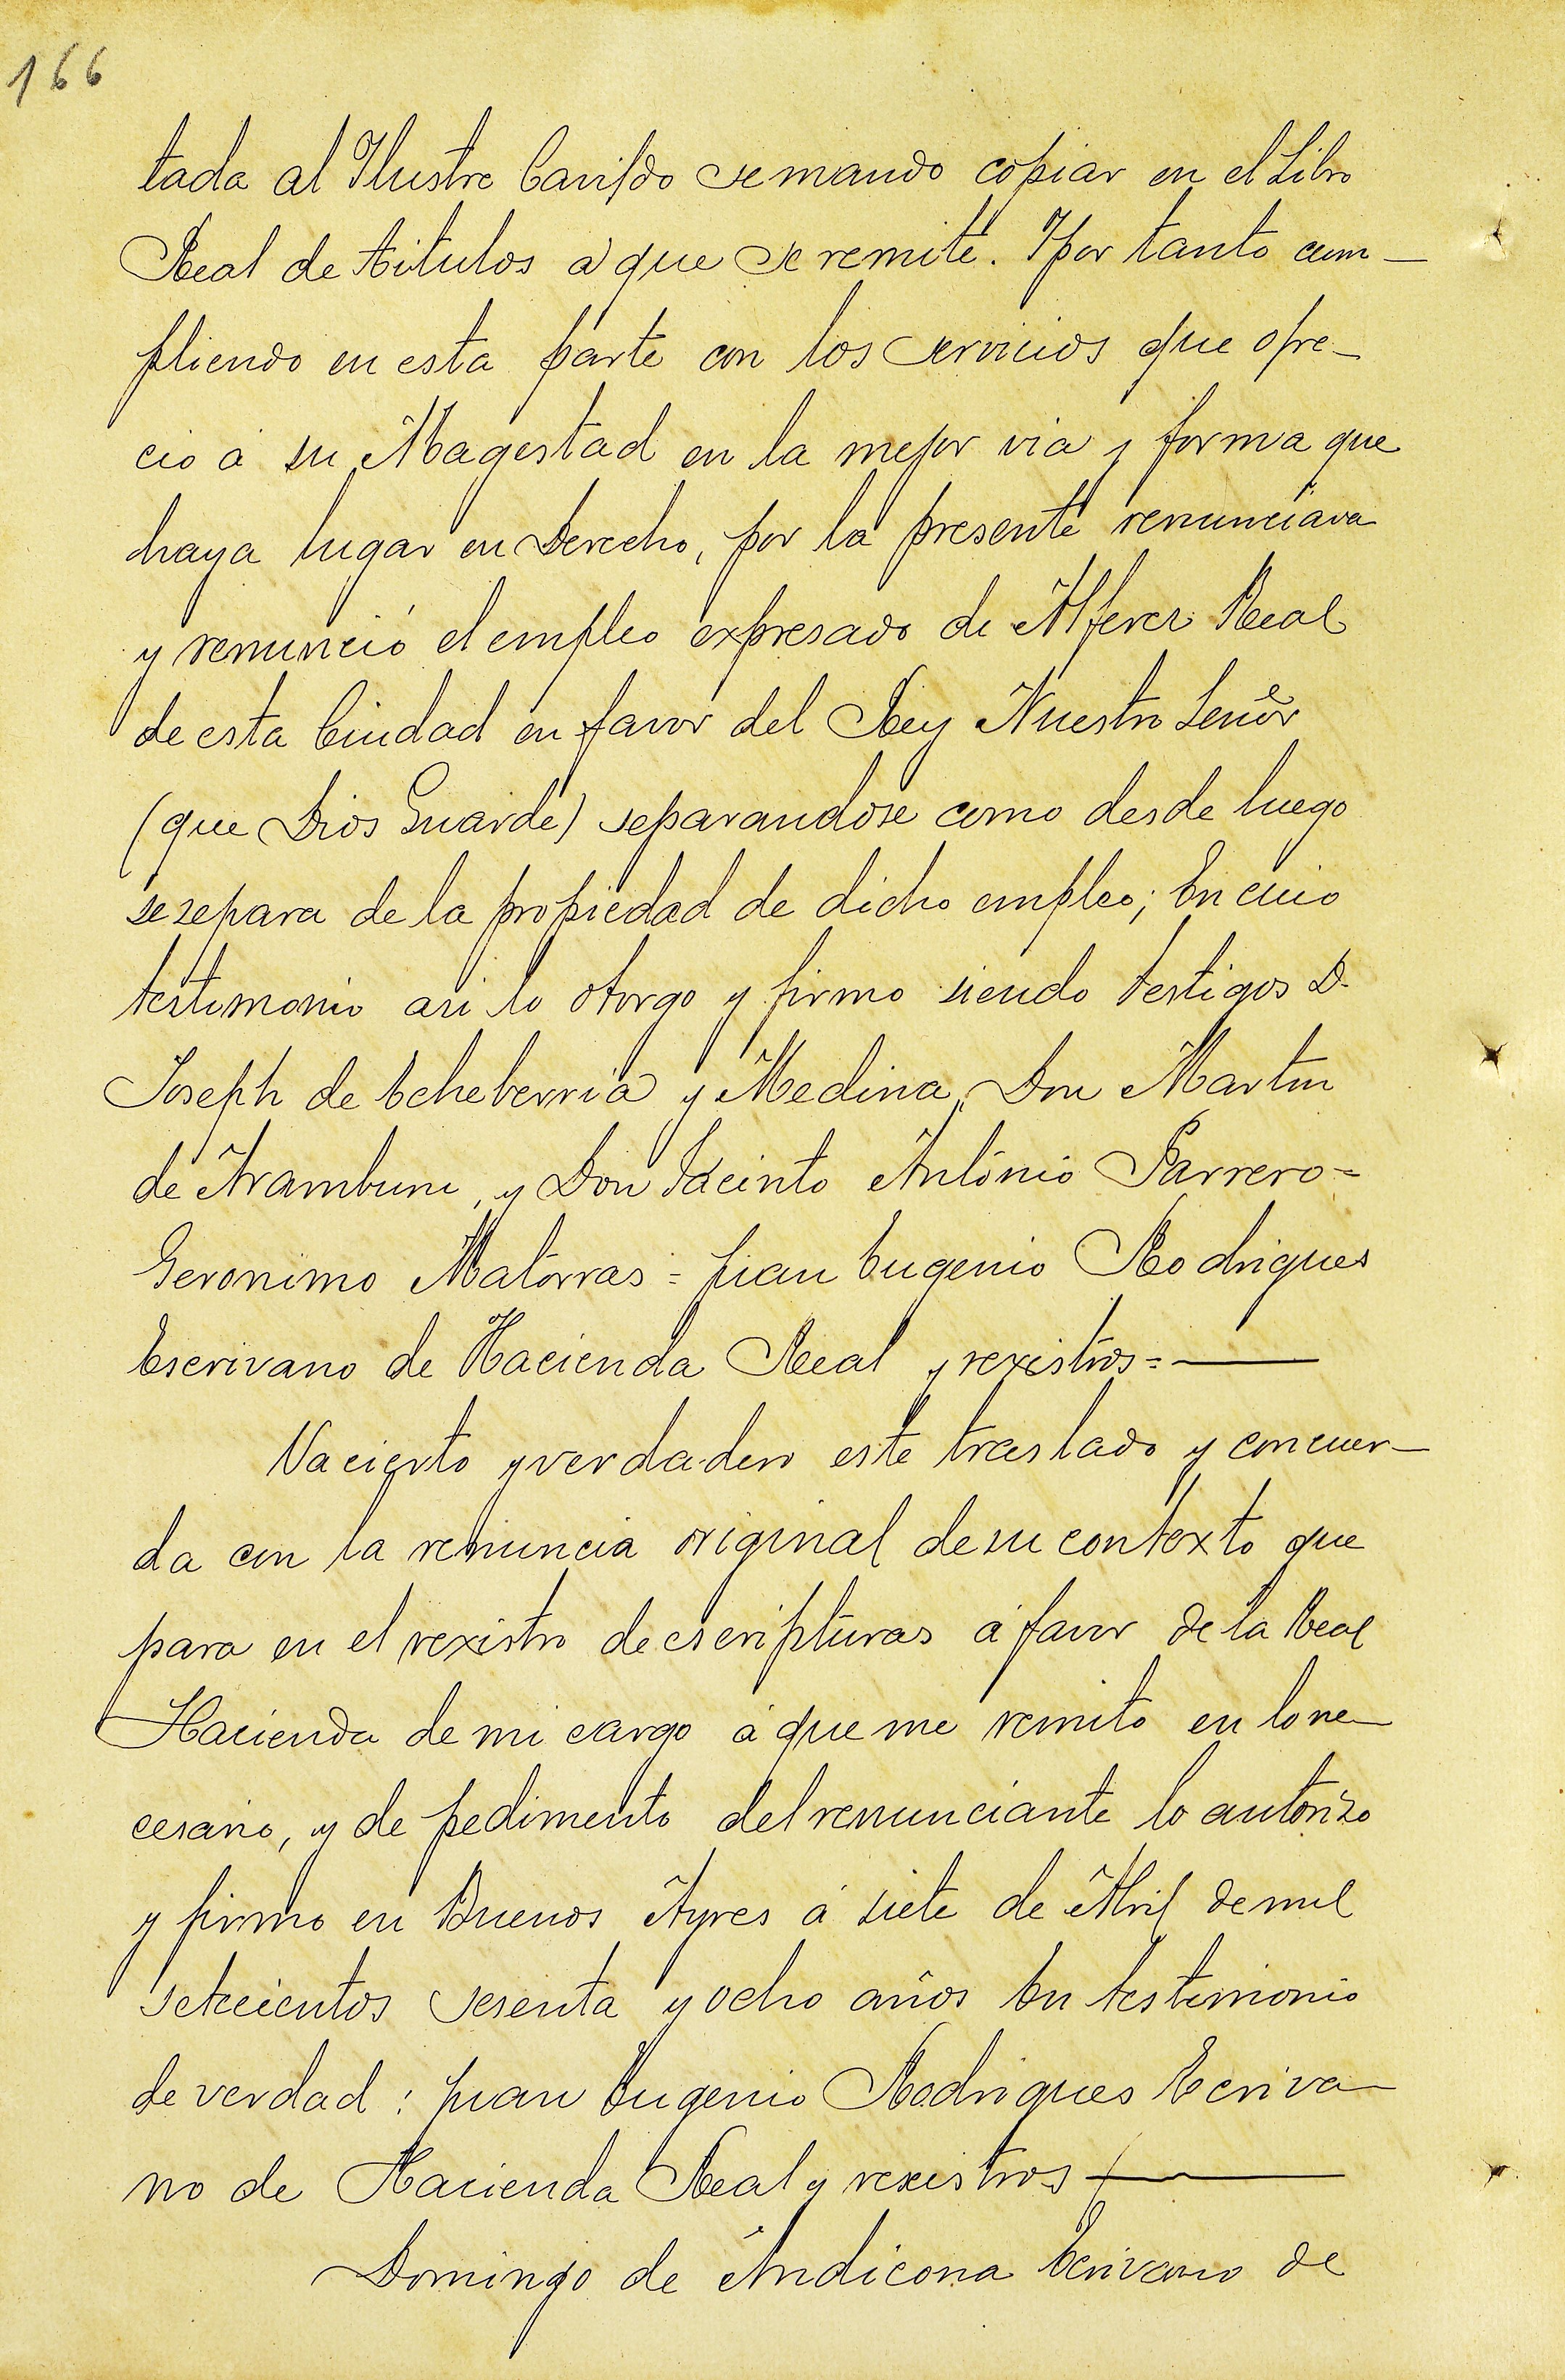 166
tada al Ilustre Cavildo se mando copiar en el Libro
Real de titulos a que se remite. Y por tanto cum-
pliendo en esta parte con los servicios que ofre-
cio á su Magestad en la mejor via y forma que
haya lugar en Derecho, por la presente renunciava
y renunció el empleo expresado de Alferez Real
de esta Ciudad en favor del Rey Nuestro Señor
(que Dios Guarde) separandose como desde luego
se separa de la propiedad de dicho empleo; En cuio
testimonio asi lo otorgo y firmo siendo testigos D.
Joseph de Echeberria y Medina, Don Martin
de Aramburu, y Don Jacinto Antonio Parrero=
Geronimo Matorras = Juan Eugenio Rodrigues
Escrivano de Hacienda Real y rexistros=
Va cierto y verdadero este traslado y concuer-
da con la renuncia original de su contexto que
para en el rexistro de escripturas á favor de la Real
Hacienda de mi cargo á que me remito en lo ne-
cesario, y de pedimento del renunciante lo autorizo
y firmo en Buenos Ayres á siete de Abril de mil
setecientos sesenta y ocho años En testimonio
de verdad : Juan Eugenio Rodrigues Escriva-
no de Hacienda Real y rexistros
Domingo de Andicona Escrivano de